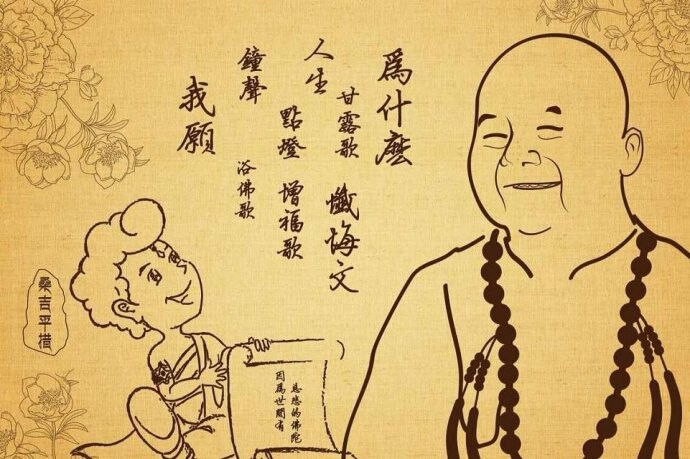 為什麼
甘露歌
懺悔文
人生
點燈
增福歌
鐘聲
浴佛歌
我願
桑吉平措
慈悲的佛陀
因為世間有